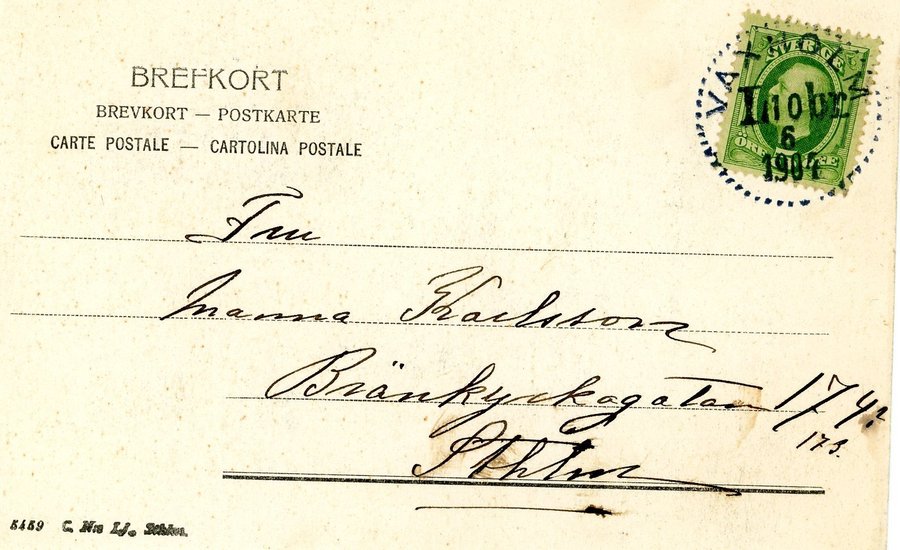 BREFKORT
BREVKORT — POSTKARTE
CARTE POSTALE — CARTOLINA POSTALE
VAXHOLM
SVERIGE
10
6
1904
Fru
Manna Karlsson
Bränkyrkagatan 174?
173.
Sthlm
5459 C. N:s Lj., Sthlm.